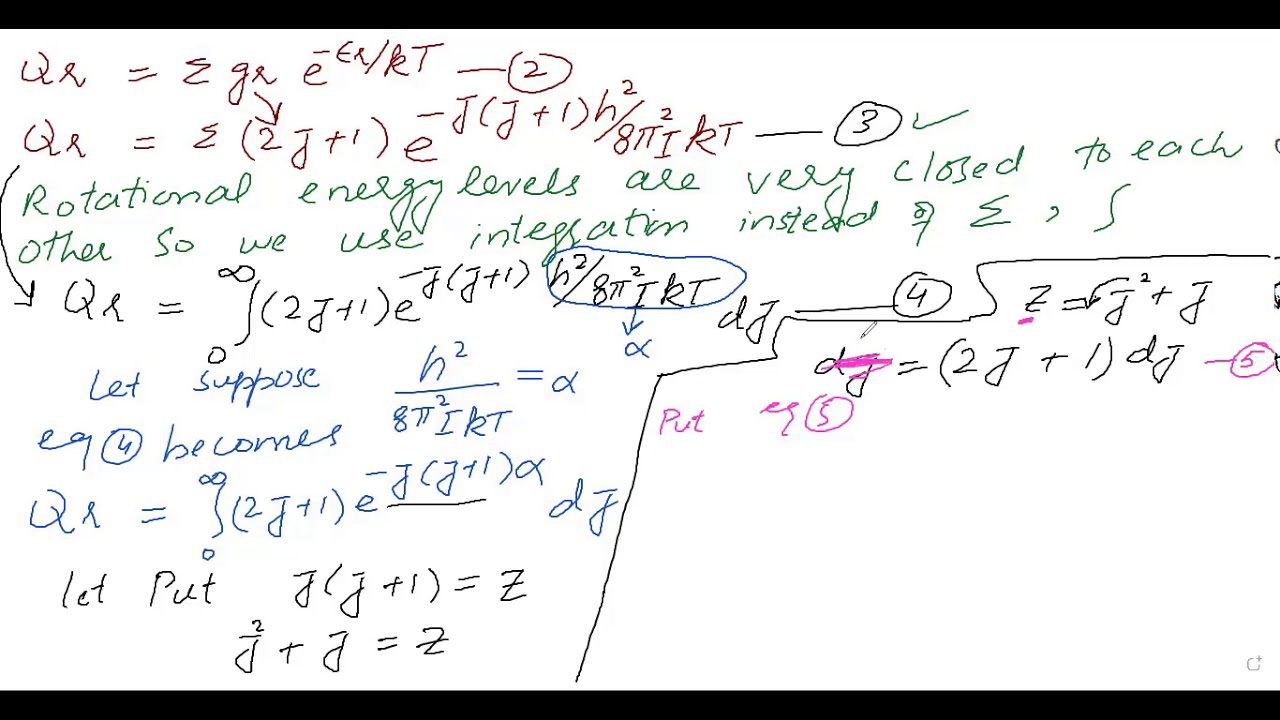 Qr = Σ gr e^-Er/kT — (2)
Qr = Σ (2J+1) e^-J(J+1)h²/8π²IkT — (3) ✓
Rotational energy levels are very closed to each
other so we use integration instead of Σ, ∫
Qr = ∫₀^∞ (2J+1) e^-J(J+1) h²/8π²IkT dJ — (4)
α
Let suppose h²/8π²IkT = α
eq (4) becomes
Qr = ∫₀^∞ (2J+1) e^-J(J+1)α dJ
Let Put J(J+1) = Z
J² + J = Z
Z = J² + J
= (2J + 1) dJ — (5)
Put eq (5)